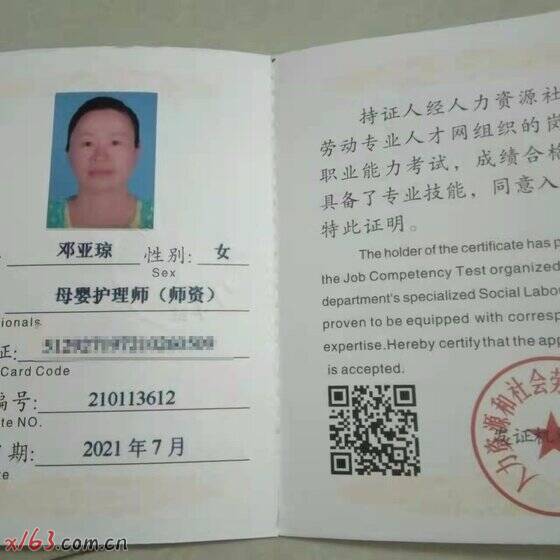 邓亚琼 性别: 女
Sex
母婴护理师（师资）
ionals
证:
Card Code
编号: 210113612
te NO.
期: 2021 年 7 月
te
持证人经人力资源社
劳动专业人才网组织的岗
职业能力考试，成绩合格
具备了专业技能，同意入
特此证明。
The holder of the certificate has p
the Job Competency Test organized
department's specialized Social Labou
proven to be equipped with corresp
expertise.Hereby certify that the app
is accepted.
人力资源和社会劳
发证机
x163.com.cn